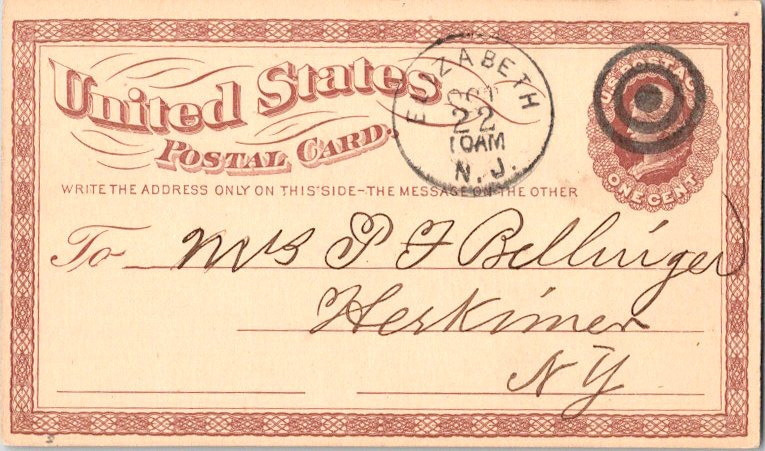 United States
POSTAL CARD.
WRITE THE ADDRESS ONLY ON THIS SIDE - THE MESSAGE ON THE OTHER
ELIZABETH
OCT
22
10AM
N.J.
U.S. POSTAGE
ONE CENT
To Mrs P F Bellinger
Herkimer
NY